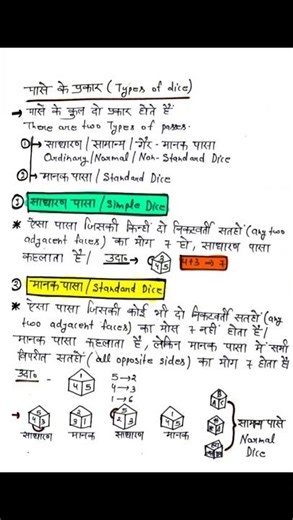 पासे के प्रकार (Types of dice)
→ पासे के कुल दो प्रकार होते हैं
There are two Types of passes.
① → साधारण / सामान्य / गैर-मानक पासा
Ordinary / Normal / Non-Standard Dice
② → मानक पासा / Standard Dice
① साधारण पासा / Simple Dice
* ऐसा पासा जिसकी किन्ही दो निकटवर्ती सतहों (any two
adjacent faces) का योग 7 हो, साधारण पासा
कहलाता है / उदा० → 4 5 4+3 → 7
② मानक पासा / Standard Dice
* ऐसा पासा जिसकी कोई भी दो निकटवर्ती सतहों (any
two adjacent faces) का योग 7 नहीं होता है /
मानक पासा कहलाता है, लेकिन मानक पासा में सभी
विपरीत सतहों (all opposite sides) का योग 7 होता है
उदा० - 1 4 5 5→2
4→3
1→6
साधारण मानक साधारण मानक
सामान्य पासे
Normal
Dice